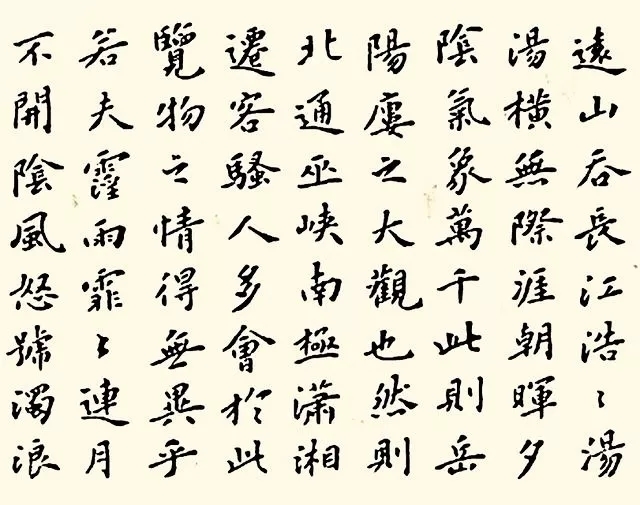 遠山吞長江浩〻湯
湯橫無際涯朝暉夕
陰氣象萬千此則岳
陽廔之大觀也然則
北通巫峽南極瀟湘
遷客騷人多會於此
覽物之情得無異乎
若夫霪雨霏〻連月
不開陰風怒號濁浪